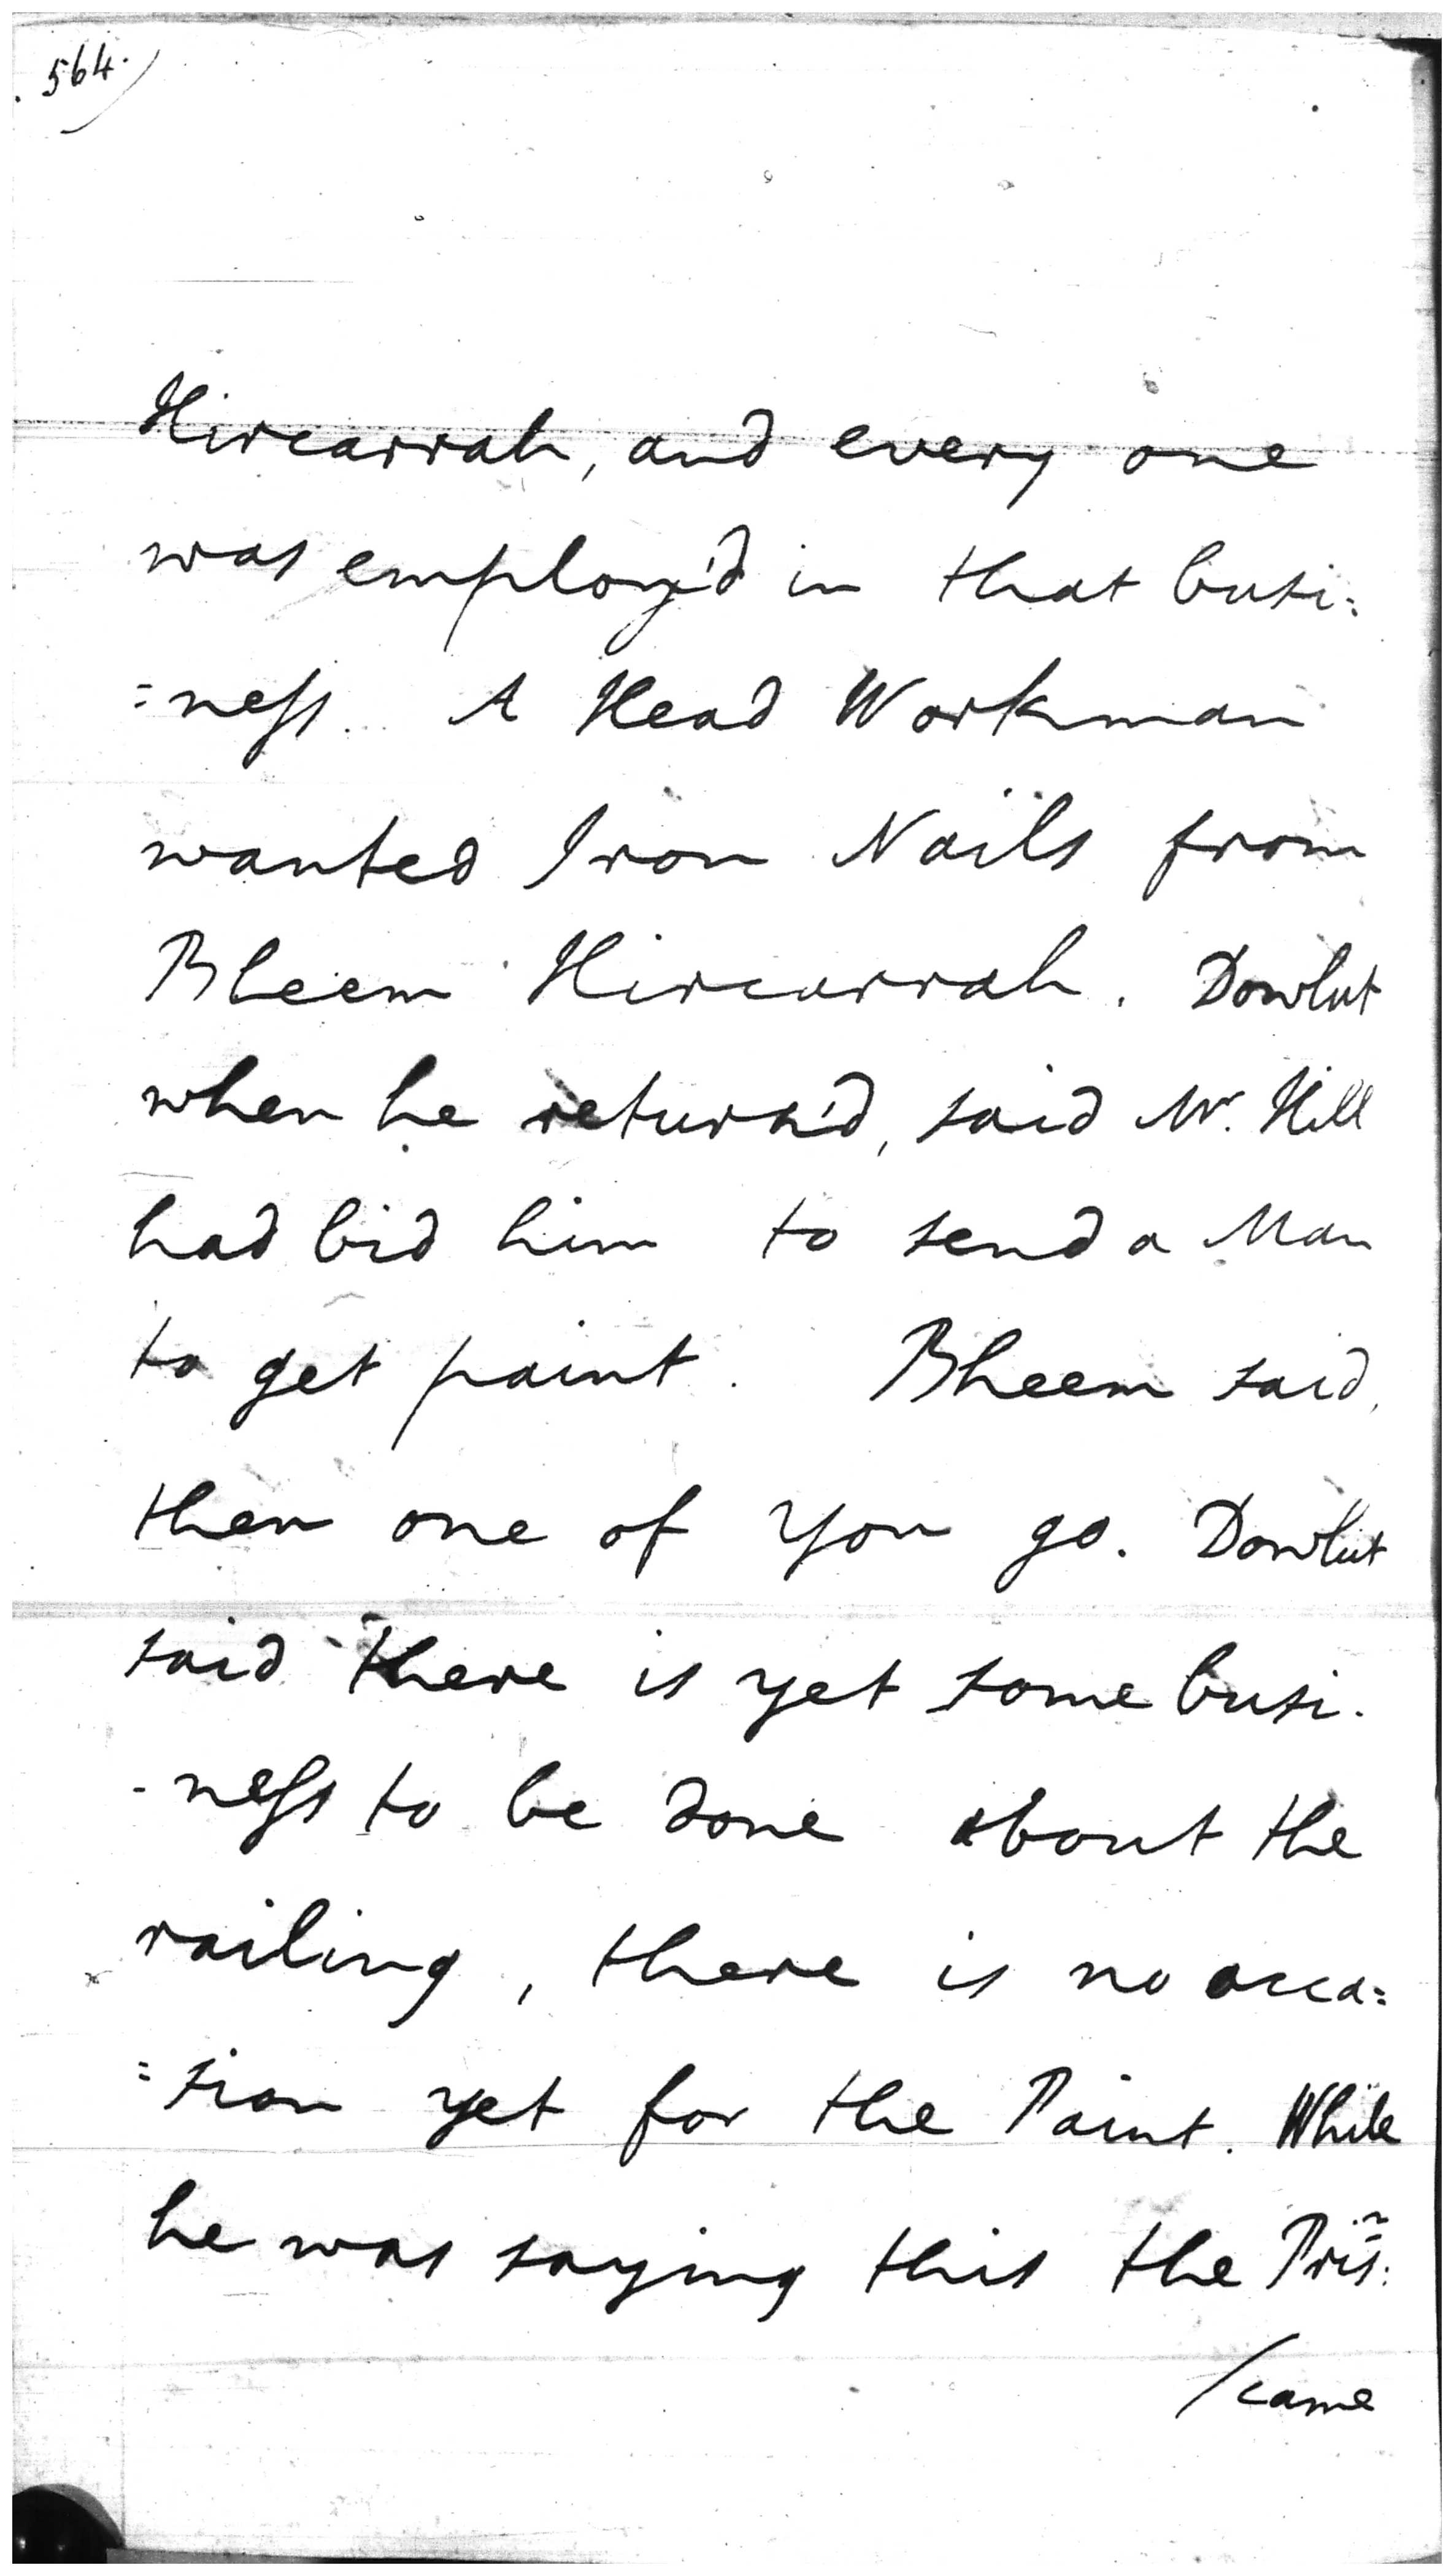 564.
Hircarrah, and every one
was employ'd in that busi=
=ness. A Head Workman
wanted Iron Nails from
Bheem Hircarrah. Dowlut
when he return'd, said Mr. Hill
had bid him to send a Man
to get paint. Bheem said,
then one of you go. Dowlut
said there is yet some busi-
-ness to be done about the
railing, there is no occa=
=sion yet for the Paint. While
he was saying this the Pris:
/came